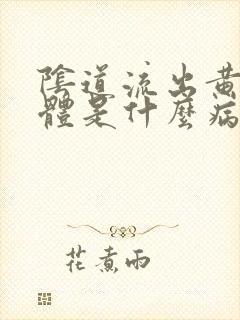 陰道流出黃
體是什麼病
花煮雨